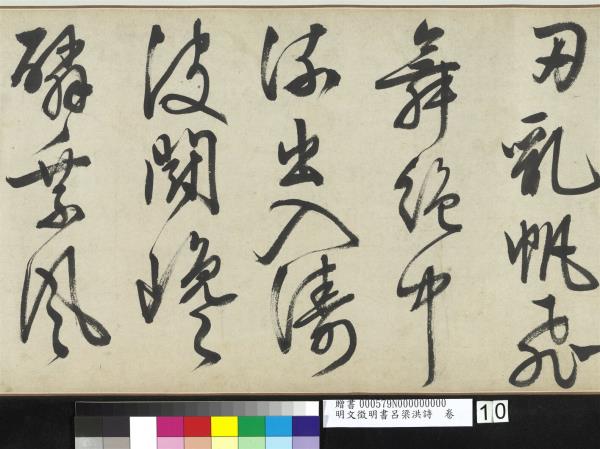 亂帆飛
舞絕中
流出入濤
波
磷乘風
贈書 000579N000000000
明文徵明書呂梁洪詩 卷
10